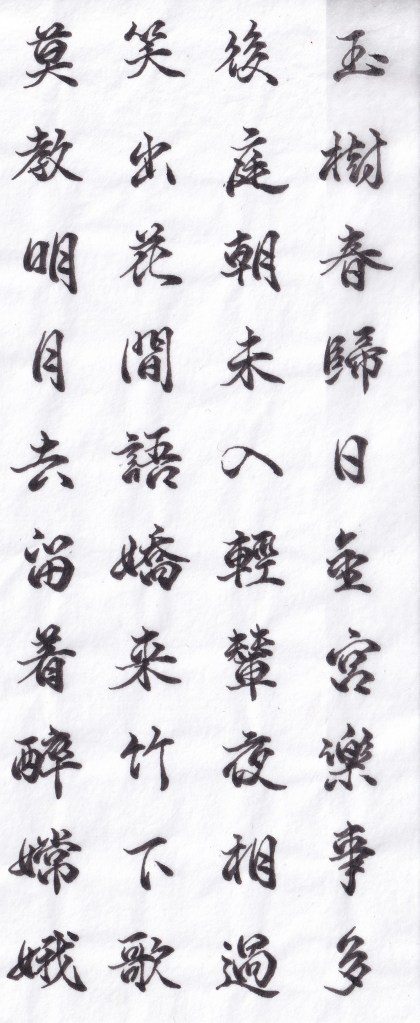 玉樹春歸日金宮樂事多
後庭朝未入輕輦夜相過
笑出花間語嬌來竹下歌
莫教明月去留着醉嫦娥